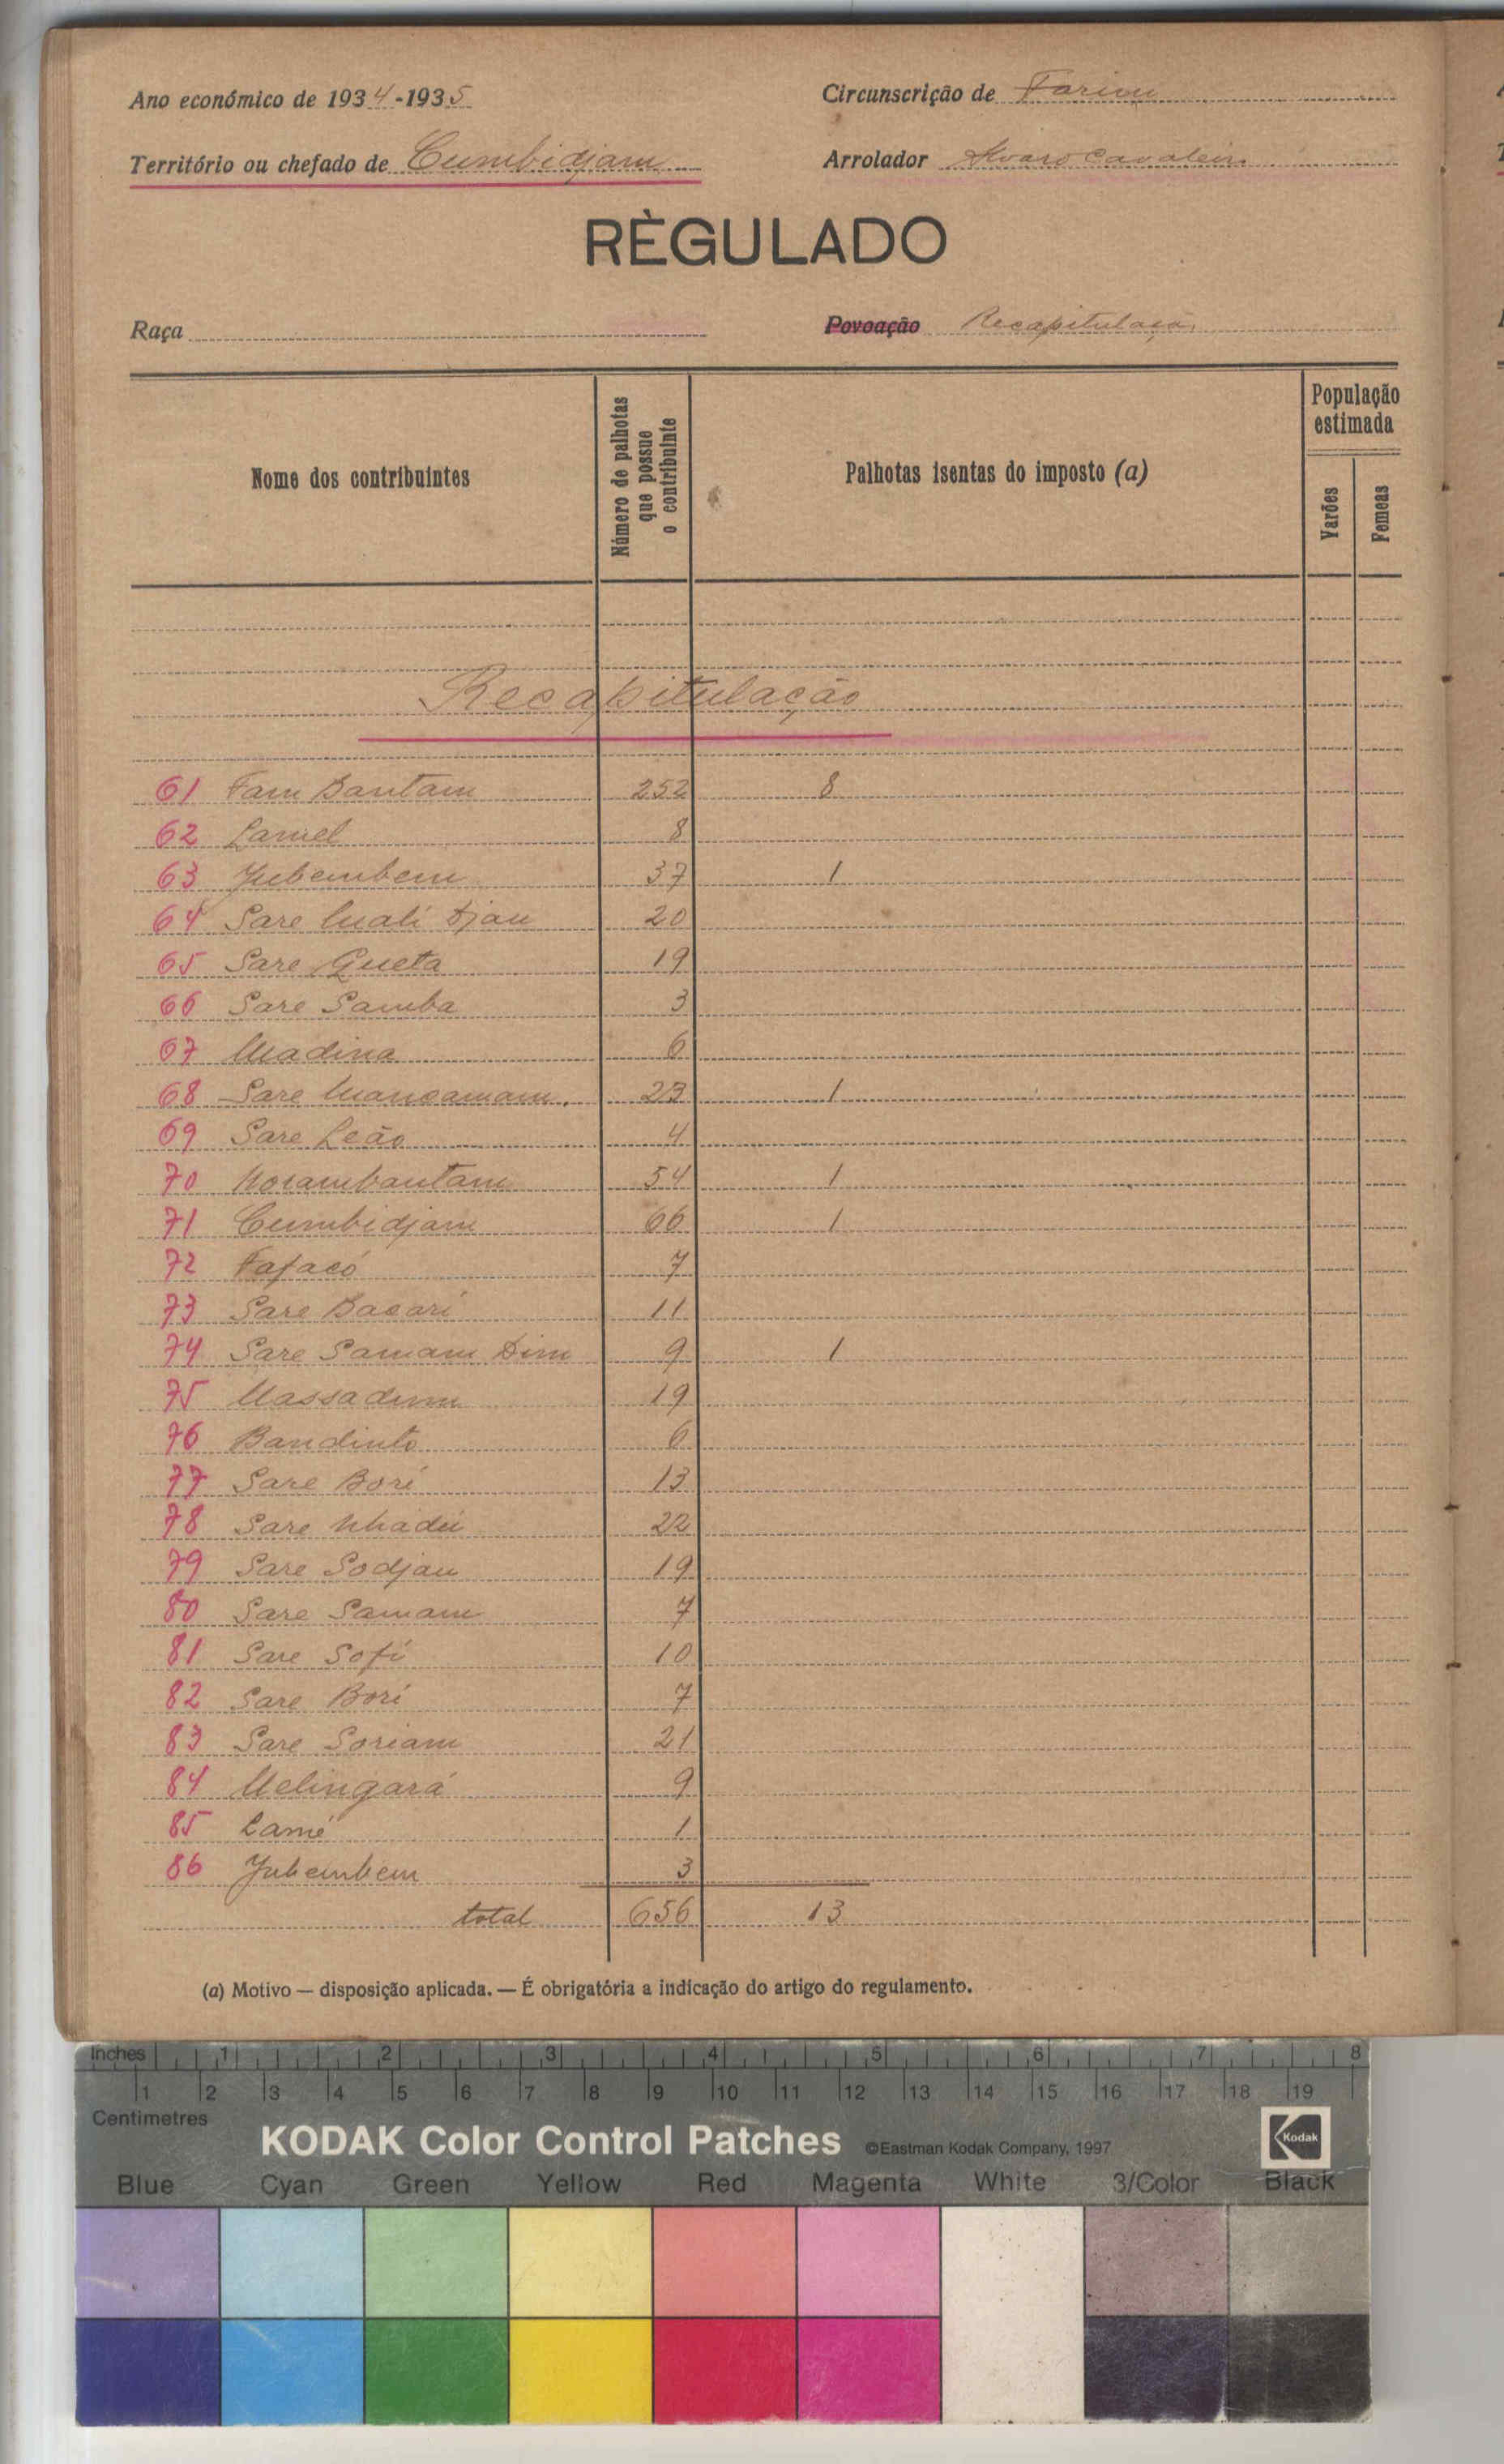 Ano económico de 1934-1935
Circunscrição de Farim
Território ou chefado de Cumbidjam
Arrolador Alvaro Cavaleiro
RÈGULADO
Raça
Povoação Recapitulação
Nome dos contribuintes
Número de palhotas que possue o contribuinte
Palhotas isentas do imposto (a)
População estimada
Varões
Femeas
Recapitulação
61 Fam Bantam 252 8
62 Lamel 8
63 Jubembem 37 1
64 Sare Mali Djau 20
65 Sare Queta 19
66 Sare Samba 3
67 Madina 6
68 Sare Mancamam. 23 1
69 Sare Leão 4
70 Norambantam 54 1
71 Cumbidjam 66 1
72 Fafacó 7
73 Sare Bacari 11
74 Sare Samam Dim 9 1
75 Massadim 19
76 Bandinto 6
77 Sare Bori 13
78 Sare Nhadú 22
79 Sare Sodjau 19
80 Sare Samam 7
81 Sare Sofi 10
82 Sare Bori 7
83 Sare Soriam 21
84 Melingará 9
85 Lamé 1
86 Jubembem 3
total 656 13
(a) Motivo — disposição aplicada. — É obrigatória a indicação do artigo do regulamento.
Inches 1 2 3 4 5 6 7 8
1 2 3 4 5 6 7 8 9 10 11 12 13 14 15 16 17 18 19
Centimetres
KODAK Color Control Patches ©Eastman Kodak Company, 1997 Kodak
Blue Cyan Green Yellow Red Magenta White 3/Color Black